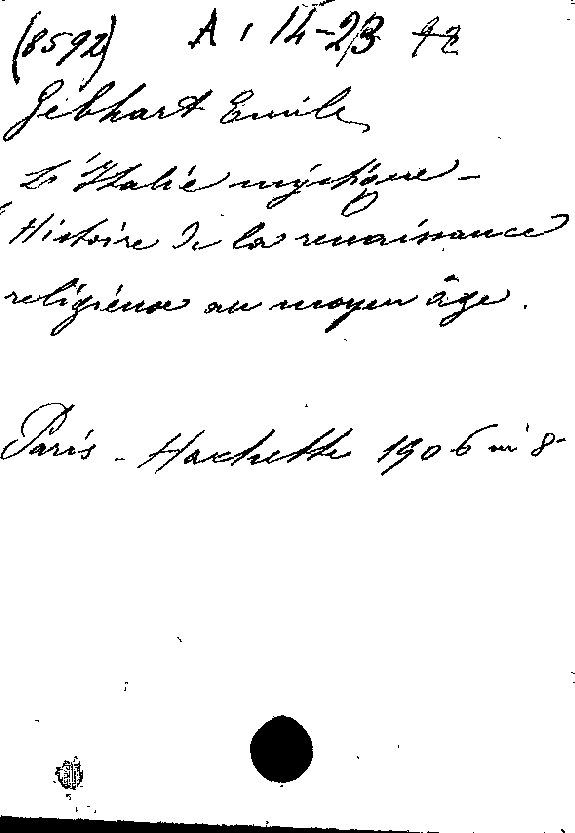 (8592) A, 14-23
Gebhart Emile
L'Italie mystique -
Histoire de la renaissance
religieuse au moyen âge.
Paris - Hachette 1906 in 8-